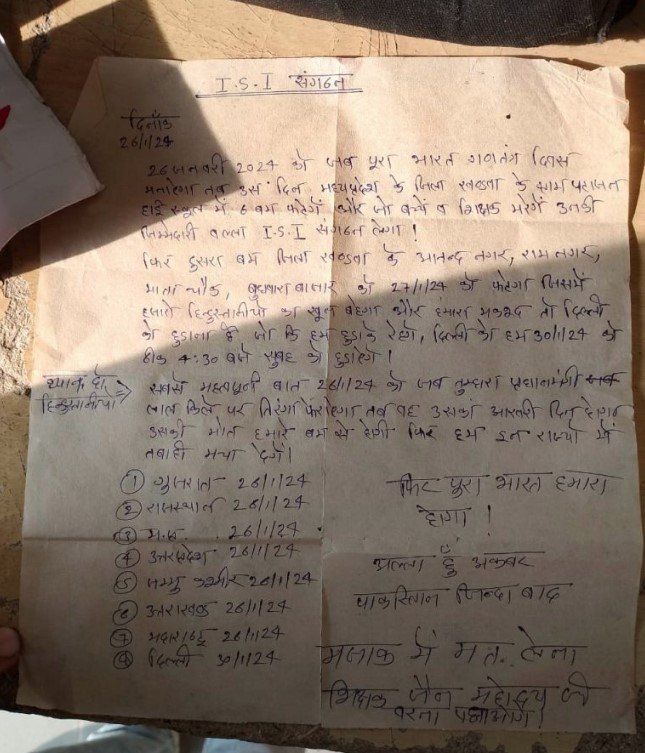 I.S.I संगठन
दिनाँक
26/1/24
26 जनवरी 2024 को जब पूरा भारत गणतंत्र दिवस
मनायेगा तब उस दिन मध्यप्रदेश के जिला खण्डवा के ग्राम
हाई स्कूल में 6 बम फटेगें और जो बच्चे व शिक्षक मरेगें उनकी
जिम्मेदारी I.S.I संगठन लेगा!
फिर दुसरा बम जिला खण्डवा के आनन्द नगर, राम नगर,
माता चौक, बुधवारा बाजार को 27/1/24 को फटेगा जिसमें
हजारो हिन्दुस्तानीयो का खून बहेगा और हमारा मकसद तो दिल्ली
को है जो कि हम रहेगे, दिल्ली को हम 30/1/24 को
ठीक 4:30 बजे सुबह को
ध्यान दो
हिन्दुस्तानीयो
सबसे महत्वपूर्ण बात 26/1/24 को जब तुम्हारा प्रधानमंत्री
लाल किले पर तिरंगा फेरायेगा तब वह उसका आखरी दिन होगा
उसकी मौत हमारे बम से होगी फिर हम इन राज्यो में
तबाही मचा देगें।
① गुजरात 26/1/24
② राजस्थान 26/1/24
③ म.प्र. 26/1/24
④ उत्तरप्रदेश 26/1/24
⑤ जम्मु कश्मीर 26/1/24
⑥ उत्तराखण्ड 26/1/24
⑦ महाराष्ट्र 26/1/24
⑧ दिल्ली 30/1/24
फिर पूरा भारत हमारा
होगा!
अल्ला हुँ अकबर
पाकिस्तान जिन्दा बाद
मजाक में मत लेना
शिक्षक जैन महोदय जी
वरना पछताओगे।